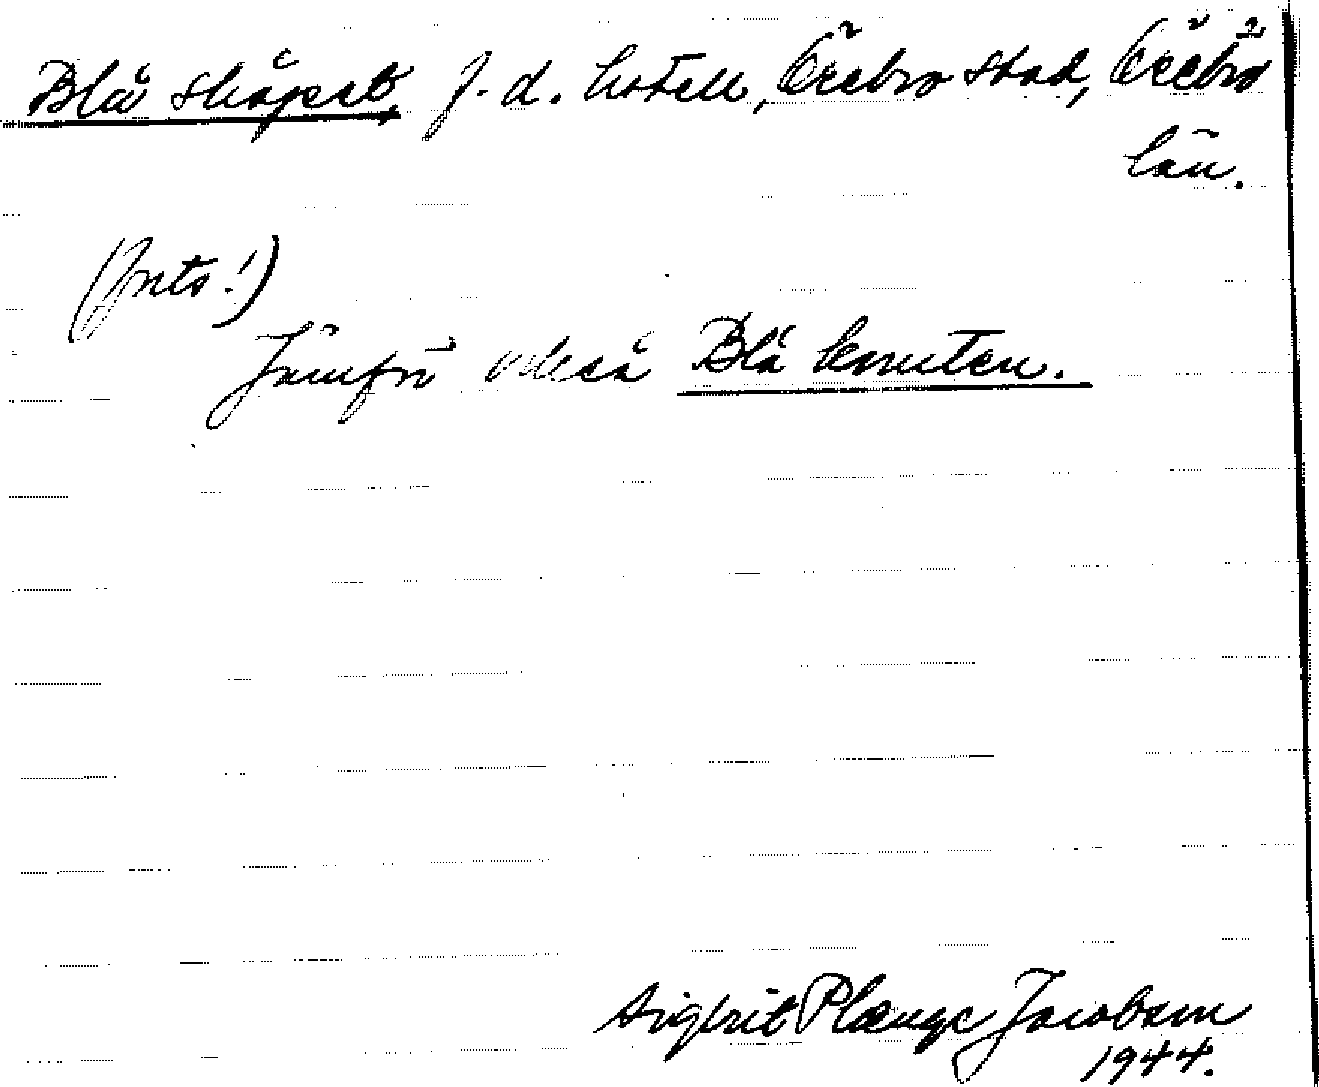 Blå skåpet, f. d. hotell, Örebro stad, Örebro
län.
(Foto!)
Jämför också Blå knuten.
Sigbrit Plænge Jacobson
1944.